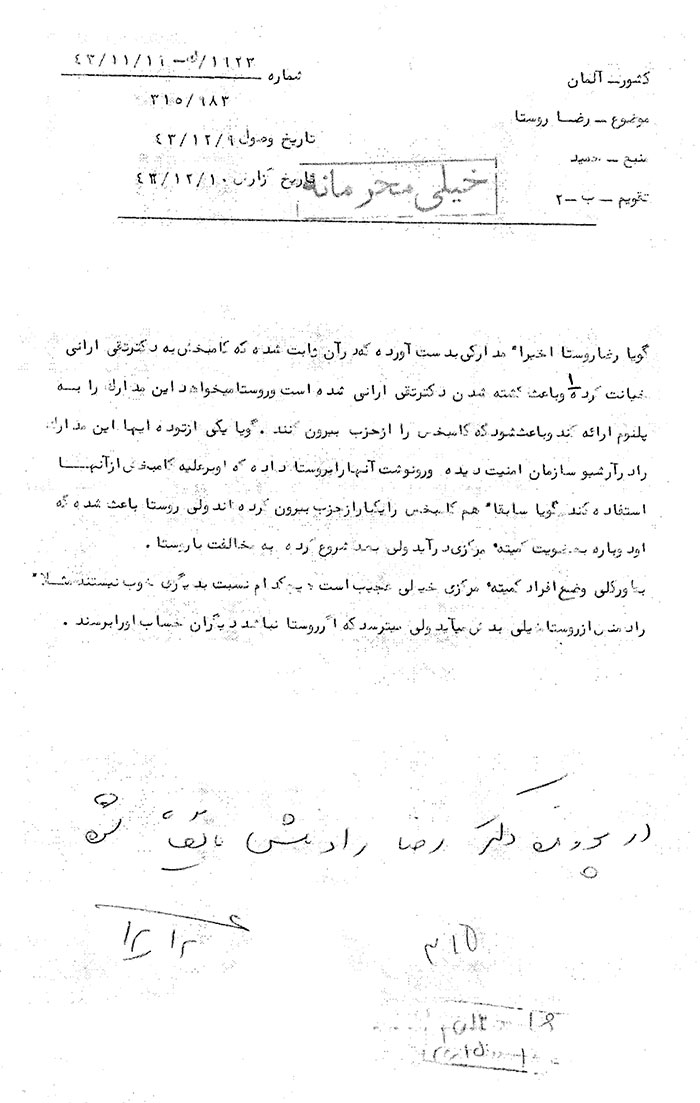 کشور ـ آلمان
شماره ۱۹۲۳/ک ـ ۴۳/۱۱/۱۹
۳۱۵/۹۸۳
موضوع ـ رضا روستا
تاریخ وصول ۴۳/۱۲/۹
منبع ـ
تاریخ گزارش ۴۳/۱۲/۱۰
خیلی محرمانه
تقویم ـ ب ـ ۲
گویا رضا روستا اخیراً مدارکی بدست آورده که در آن ثابت شده که کامبخش به دکتر تقی ارانی
خیانت کرده و باعث کشته شدن دکتر تقی ارانی شده است و روستا میخواهد این مدارک را به
پلنوم ارائه کند و باعث شود که کامبخش را از حزب بیرون کنند . گویا یکی از توده ایها این مدارک
را در آرشیو سازمان امنیت دیده و رونوشت آنها را بروستا داده که او بر علیه کامبخش از آنهـا
استفاده کند. گویا سابقاً هم کامبخش را یکبار از حزب بیرون کرده اند ولی روستا باعث شده که
او دوباره به عضویت کمیته مرکزی در آید ولی بعد شروع کرده به مخالفت با روستا .
بطور کلی وضع افراد کمیته مرکزی خیلی عجیب است هیچکدام نسبت بدیگری خوب نیستند مثلاً
رادمنش از روستا خیلی بدش میآید ولی میترسد که اگر روستا نباشد دیگران حساب او را برسند .
در پرونده دکتر رضا رادمنش بایگانی شود
۱۲/۱۲
۳۱۵